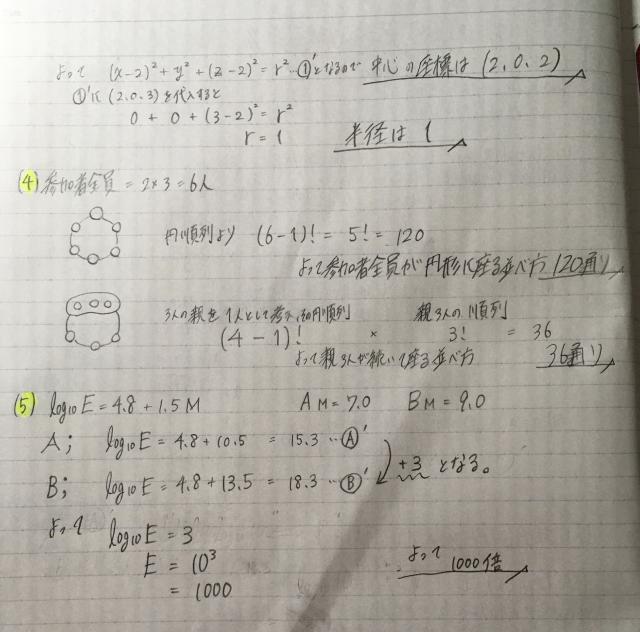 よって (x-2)²+y²+(z-2)²=r² …①'となるので 中心の座標は (2, 0, 2)
①'に (2.0.3)を代入すると
0 + 0 + (3-2)² = r²
r = 1 半径は 1
(4) 参加者全員 = 2×3 = 6人
円順列より (6-1)! = 5! = 120
よって参加者全員が円形に座る並べ方 120通り
3人の親を1人として考え 円順列 親3人の順列
(4-1)! × 3! = 36
よって親3人が続いて座る並べ方 36通り
(5) log₁₀E = 4.8 + 1.5M A M=7.0 B M=9.0
A; log₁₀E = 4.8+10.5 = 15.3 …Ⓐ'
+3 となる。
B; log₁₀E = 4.8+13.5 = 18.3 …Ⓑ'
よって log₁₀E = 3
E = 10³ よって 1000倍
= 1000